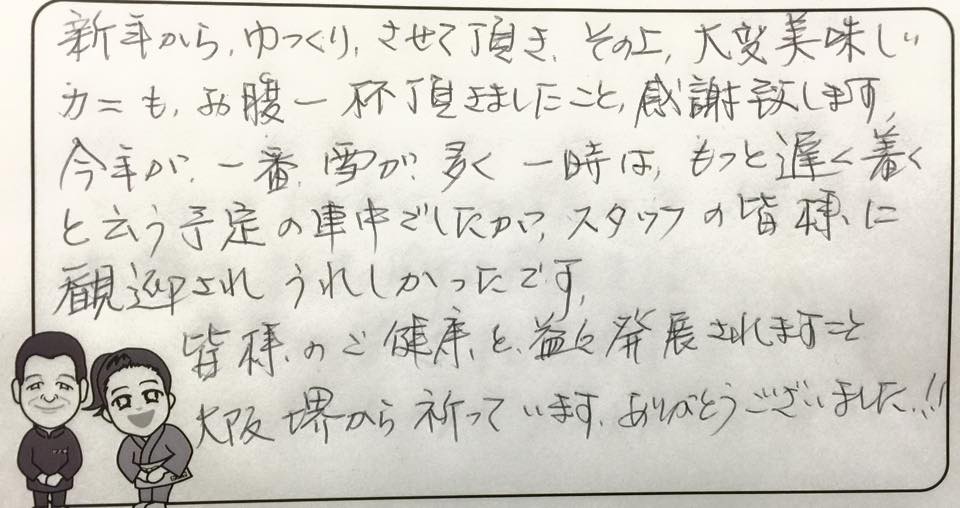 新年から、ゆっくり、させて頂き、その上、大変美味しい
カニも、お腹一杯頂きましたこと、感謝致します。
今年が、一番、雪が、多く一時は、もっと遅く着く
と云う予定の車中でしたが、スタッフの皆様、に
観迎され うれしかったです。
皆様、のご健康、と、益々発展されますこと
大阪堺から祈っています、ありがとうございました、!!